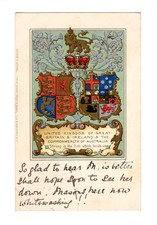 UNITED KINGDOM OF GREAT
BRITAIN & IRELAND & THE
COMMONWEALTH OF AUSTRALIA
So glad to hear M. is better
Shall hope soon to see her
down. Masons here now
whitewashing!!!